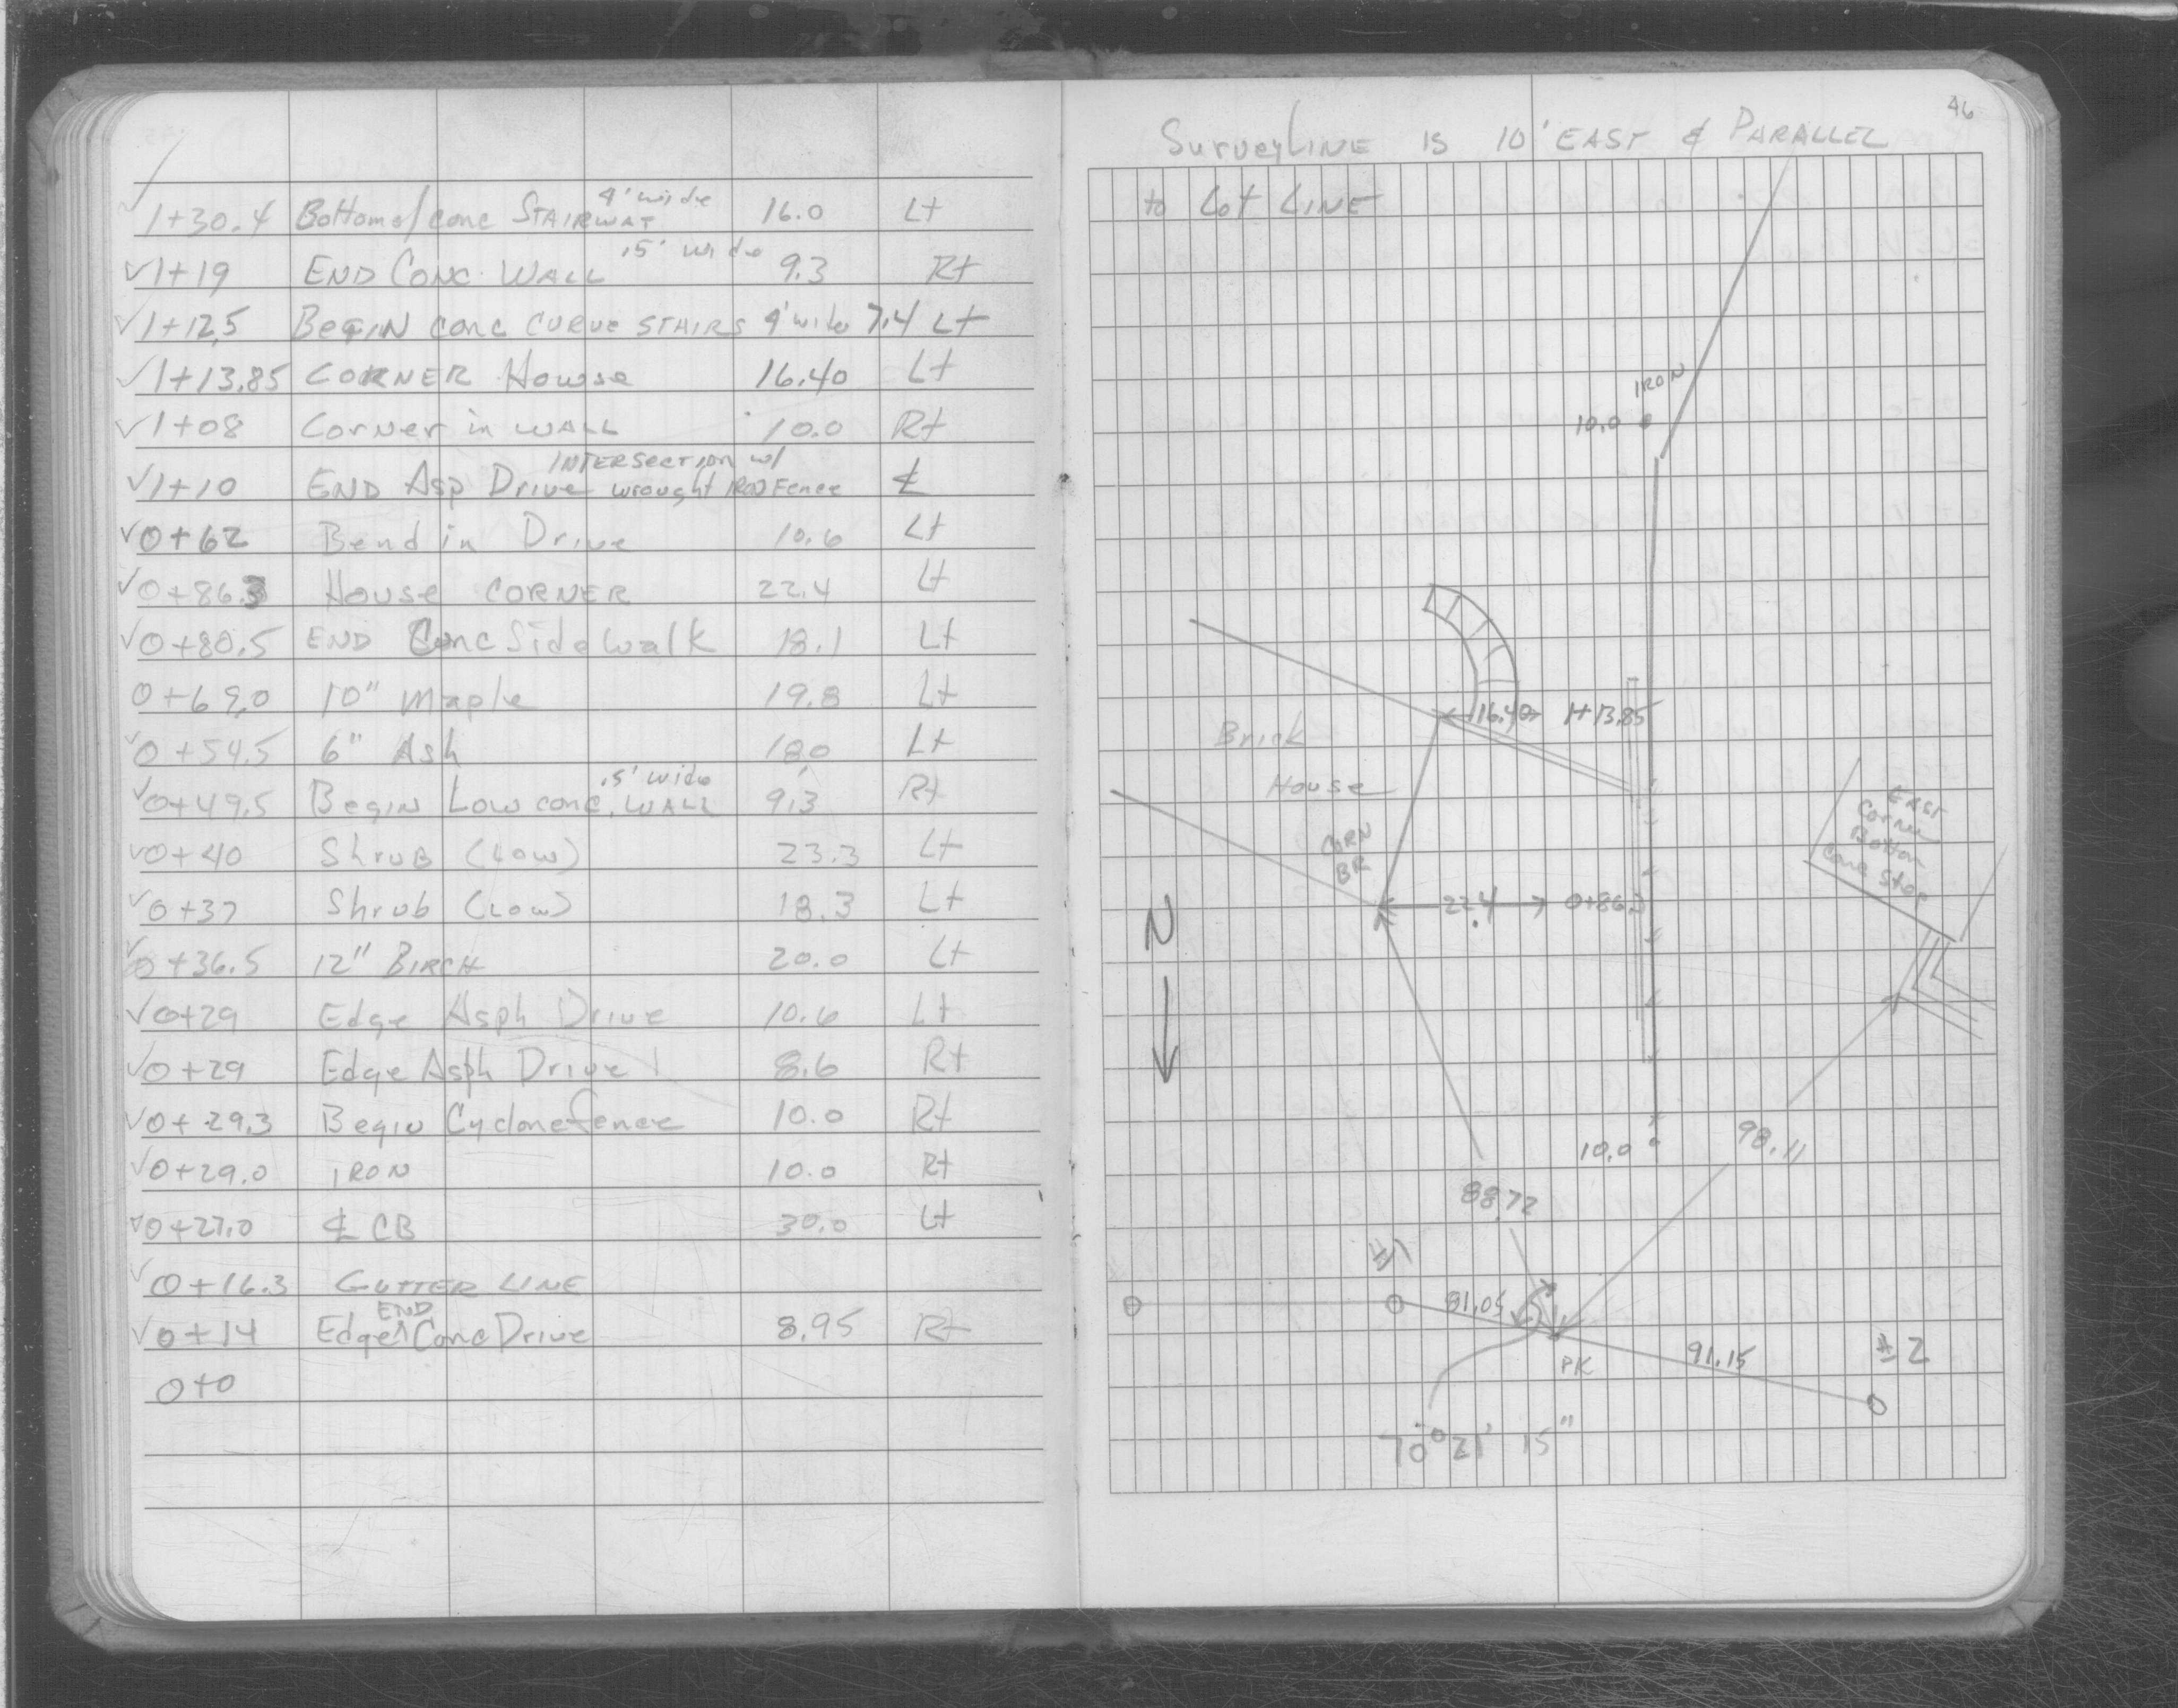 1+30.4 Bottom of conc STAIRWAY 4' wide 16.0 Lt
✓1+19 END CONC. WALL .5' wide 9.3 Rt
✓1+12.5 BEGIN conc CURVE STAIRS 4' wide 7.4 Lt
✓1+13.85 CORNER House 16.40 Lt
✓1+08 Corner in WALL 10.0 Rt
✓1+10 END Asp Drive INTERSECTION w/ wrought IRON Fence ℄
✓0+62 Bend in Drive 10.6 Lt
✓0+86.3 House CORNER 22.4 Lt
✓0+80.5 END Conc Sidewalk 18.1 Lt
0+69.0 10" Maple 19.8 Lt
✓0+54.5 6" Ash 18.0 Lt
✓0+49.5 Begin Low conc. WALL .5' wide 9.3 Rt
✓0+40 Shrub (Low) 23.3 Lt
✓0+37 Shrub (Low) 18.3 Lt
✓0+36.5 12" BIRCH 20.0 Lt
✓0+29 Edge Asph Drive 10.6 Lt
✓0+29 Edge Asph Drive 8.6 Rt
✓0+29.3 Begin Cyclone fence 10.0 Rt
✓0+29.0 IRON 10.0 Rt
✓0+27.0 ℄ CB 30.0 Lt
✓0+16.3 GUTTER LINE
✓0+14 Edge END Conc Drive 8.95 Rt
0+0
46
Survey LINE is 10' EAST & PARALLEL
to Lot LINE
IRON
10.0
16.40 1+13.85
Brick
House
CORN
BR
EAST
Corner
Bottom
Conc Step
22.4 0+86.3
N
10.0
98.11
88.72
#1
81.05
PK
91.15
#2
70° 21' 15"